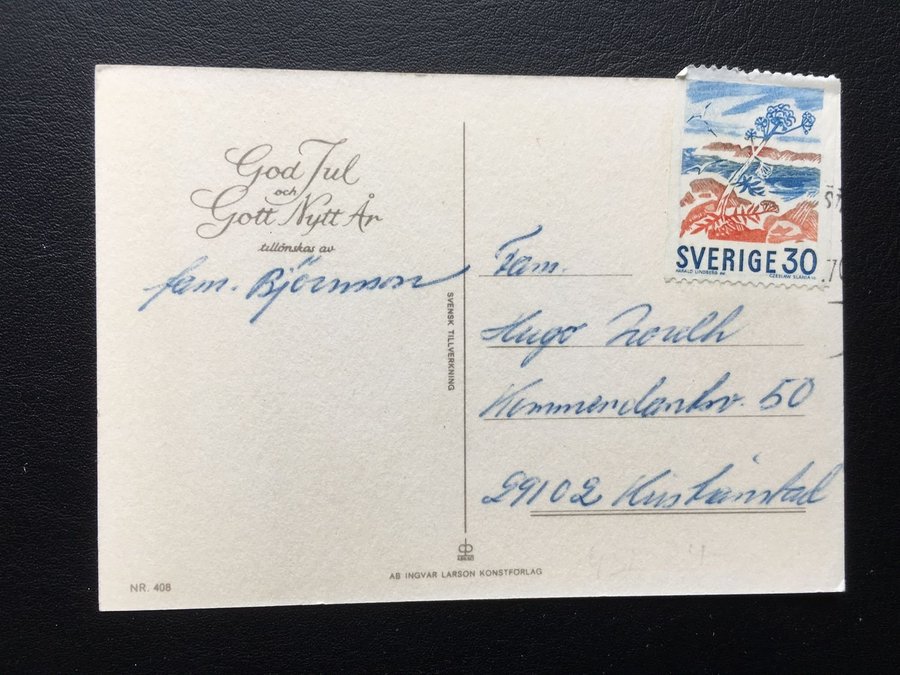 God Jul
och
Gott Nytt År
tillönskas av
fam. Björnson
SVENSK TILLVERKNING
SVERIGE 30
HARALD LINDBERG CZESLAW SLANIA
Fam.
Hugo Nordh
Kommendantsv. 50
29102 Kristianstad
AB INGVAR LARSON KONSTFÖRLAG
NR. 408